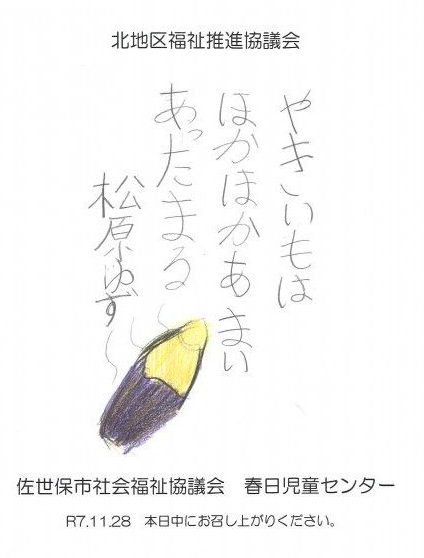 北地区福祉推進協議会
やきいもは
ほかほかあまい
あったまる
松原ゆず
佐世保市社会福祉協議会　春日児童センター
R7.11.28　本日中にお召し上がりください。